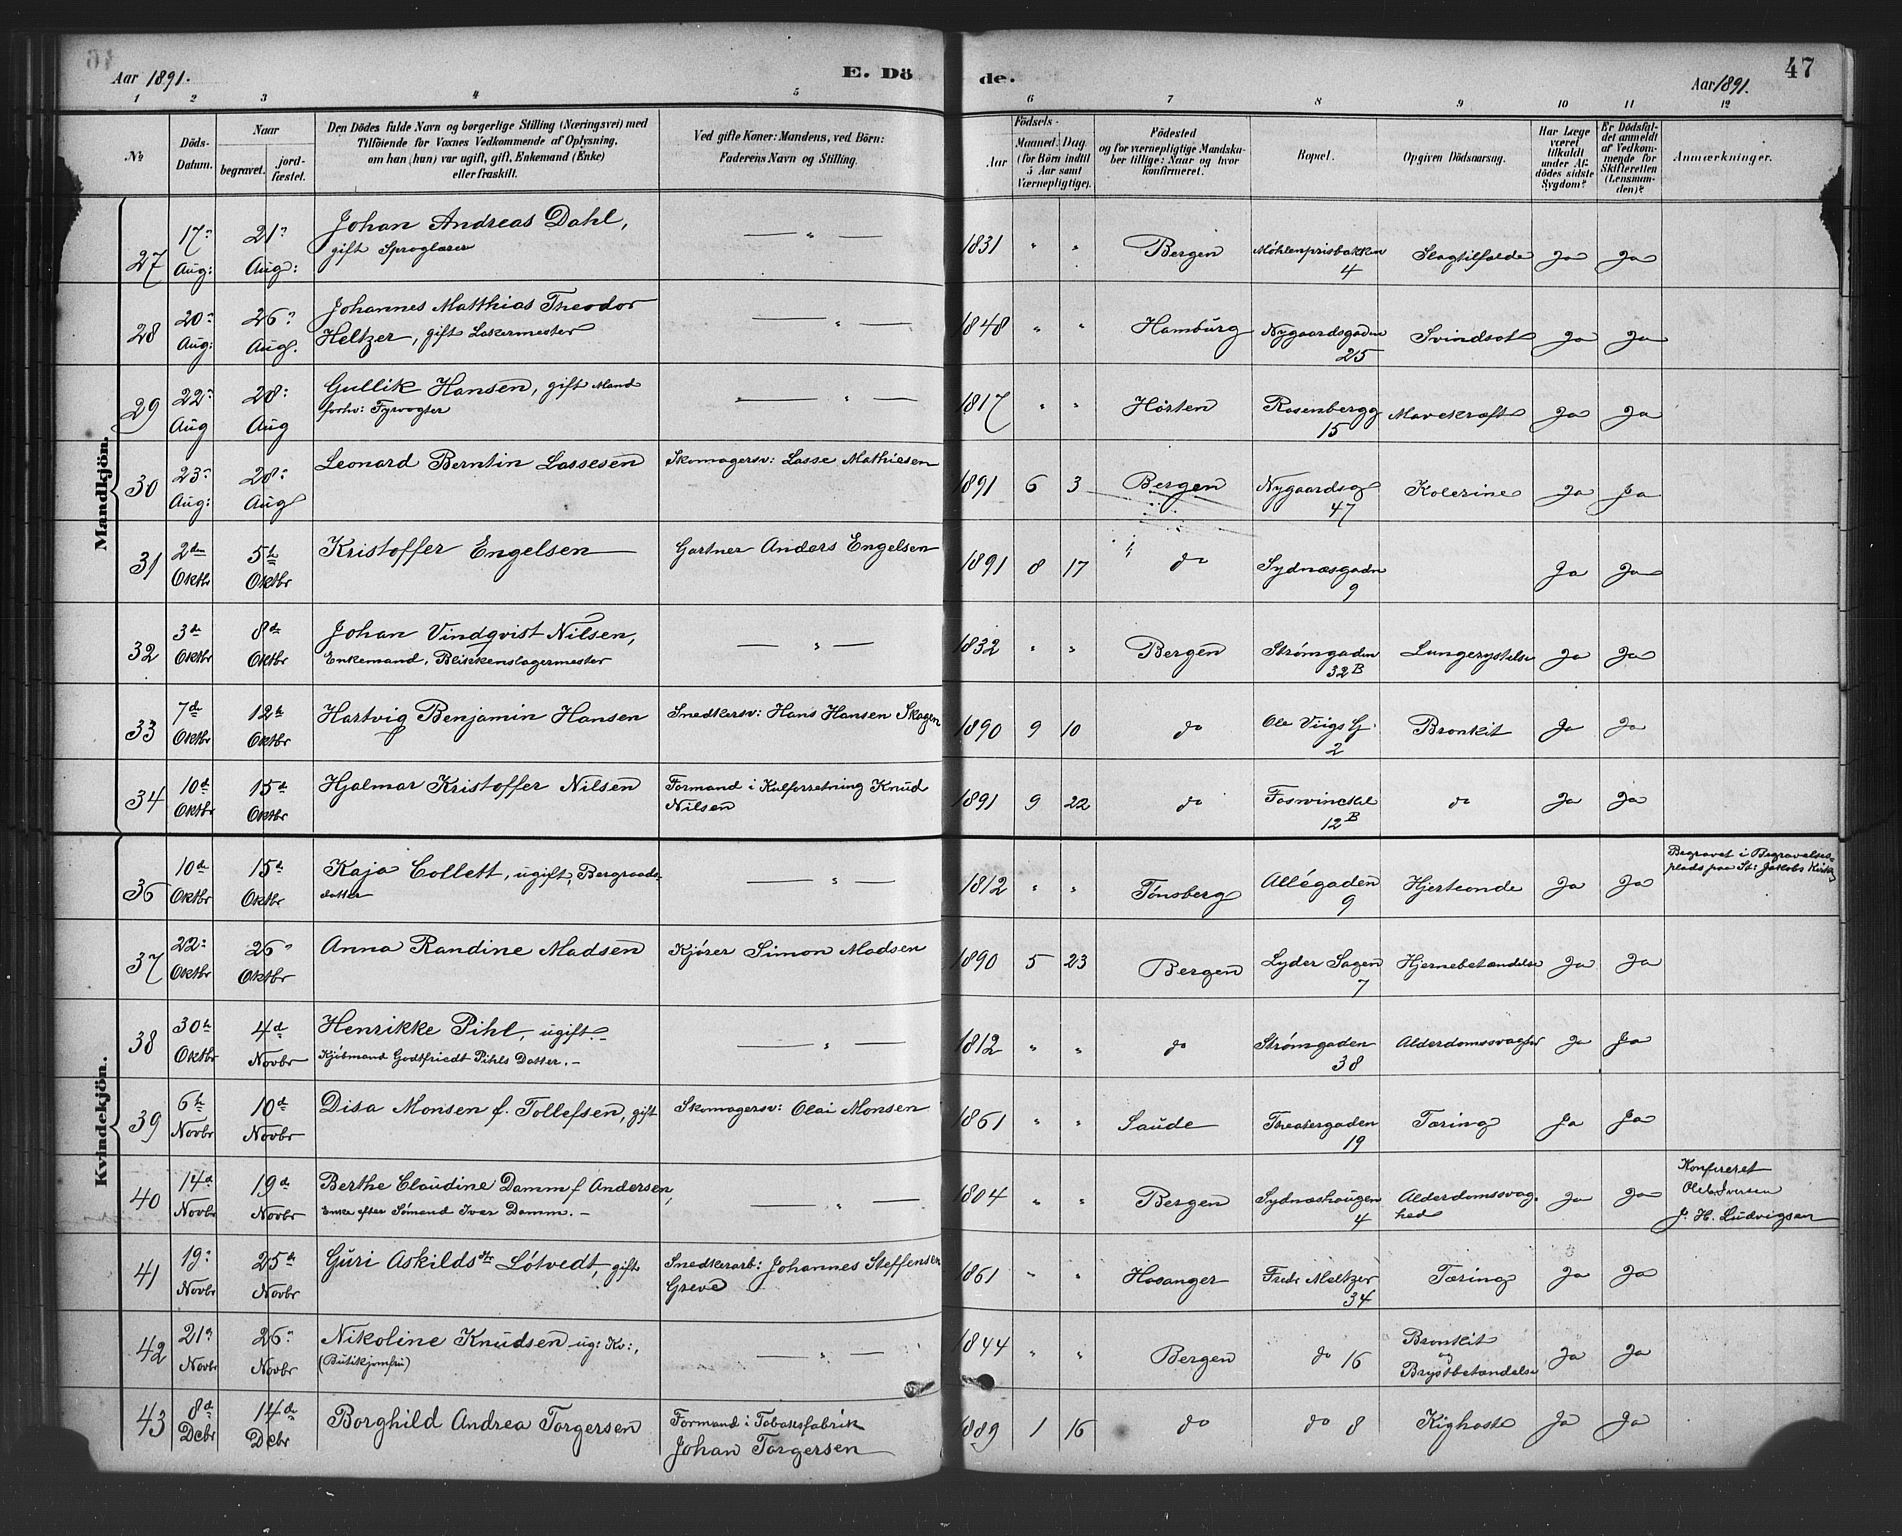 Aar 1891. E. Dö de. Aar 1891. 47
1 2 3 4 5 6 7 8 9 10 11 12
№
Döds-Datum.
Naar
begravet. jordfæstet.
Den Dödes fulde Navn og borgerlige Stilling (Næringsvei) med
Tilföiende for Voxnes Vedkommende af Oplysning,
om han (hun) var ugift, gift, Enkemand (Enke)
eller fraskilt.
Ved gifte Koner: Mandens, ved Börn:
Faderens Navn og Stilling.
Födsels-
Aar
Maaned. Dag
(for Börn indtil
5 Aar samt
Værnepligtige).
Födested
og for værnepligtige Mandskaber tillige: Naar og hvor
konfirmeret.
Bopæl.
Opgiven Dödsaarsag.
Har Læge
været
tilkaldt
under Afdödes sidste
Sygdom?
Er Dödsfaldet anmeldt
af Vedkommende for
Skifteretten
(Lensmanden)?
Anmærkninger.
Mandkjön.
27 17de Aug: 21de Aug: Johan Andreas Dahl, — " — 1831 " " Bergen Møhlenprisbakken Slagtilfælde Ja Ja
gift Sproglærer 4
28 20de Aug: 26de Aug. Johannes Matthias Theodor — " — 1848 " " Hamburg Nygaardsgaden Svindsot Ja Ja
Heltzer, gift Lakermester 25
29 22de Aug 28: Aug Gullik Hansen, gift Mand — " — 1817 " " Hørten Rosenbergg Mavekræft Ja Ja
forhv: Fyrvogter 15
30 23de Aug: 28: Aug Leonard Berntin Lassesen Skomagersv: Lasse Mathiesen 1891 6 3 Bergen Nygaardsg Kolerine Ja Ja
47
31 2den Oktbr 5te Oktbr Kristoffer Engelsen Gartner Anders Engelsen 1891 8 17 do Sydnæsgadn Ja Ja
9
32 3de Oktbr 8de Oktbr Johan Vindqvist Nilsen, — " — 1832 " " Bergen Strømgaden Lungerystelse Ja Ja
Enkemand, Blikkenslagermester 32B
33 7de Oktbr 12te Oktbr Hartvig Benjamin Hansen Snedkersv: Hans Hansen Skagen 1890 9 10 do Ole Viigs G. Bronkit Ja Ja
2
34 10de Oktbr 15de Oktbr Hjalmar Kristoffer Nilsen Formand i Kulforretning Knud 1891 9 22 do Foswinckel do Ja Ja
Nilsen 12B
Kvindekjön.
36 10de Oktbr 15de Oktbr Kaja Collett, ugift, Bergraads- — " — 1812 " " Tønsberg Allégaden Hjerteonde Ja Ja Begravet i Begravelses-
datter 9 plads paa St: Jakobs Kirkeg
37 22: Oktbr 26de Oktbr Anna Randine Madsen Kjører Simon Madsen 1890 5 23 Bergen Lyder Sagen Hjernebetændelse Ja Ja
7
38 30te Oktbr 4de Novbr Henrikke Pihl, ugift.– — " — 1812 " " do Strømgaden Alderdomssvaghed Ja Ja
Kjøbmand Godtfriedt Pihls Datter.– 38
39 6te Novbr 10de Novbr Disa Monsen f. Tollefsen, gift Skomagersv: Olai Monsen 1861 " " Saude Theatergaden Tæring Ja Ja
19
40 14de Novbr 19de Novbr Berthe Claudine Damm f Andersen, — " — 1804 " " Bergen Sydnæshaugen Alderdomssvag- Ja Ja Konfireret
Enke efter Sømand Ivar Damm.– 4 hed Iversen
J. H. Ludvigsen
41 19: Novbr 25de Novbr Guri Askildsdtr Løtvedt, gift Snedkerarb: Johannes Steffensen 1861 " " Hosanger Fredr Meltzer Tæring Ja Ja
Greve 34
42 21de Novbr 26de Novbr Nikoline Knudsen ug: Kv:, — " — 1844 " " Bergen do 16 Bronkit Ja Ja
(Butikjomfru) og
Brystbetændelse
43 8de Dcbr 14de Dcbr Borghild Andrea Torgersen Formand i Tobaksfabrik 1889 1 16 do do 8 Kighoste Ja Ja
Johan Torgersen